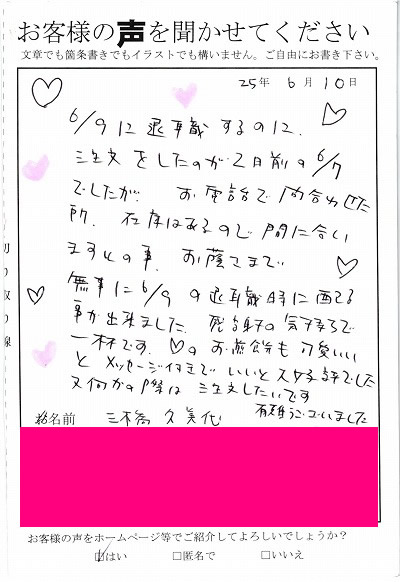 お客様の声を聞かせてください
文章でも箇条書きでもイラストでも構いません。ご自由にお書き下さい。
25年 6月10日
6/9に退職するのに、
注文をしたのが2日前の6/7
でしたが、お電話で問合わせた
所、在庫はあるので間に合い
ますとの事、お蔭さまで
無事に6/9の退職時に配る
事が出来ました。感謝の気持ちで
一杯です。♡のお煎餅も可愛いい
とメッセージ付きでいいと大好評でした
又何かの際は注文したいです
有難うございました
お名前 三橋 久美代
切り取り線
お客様の声をホームページ等でご紹介してよろしいでしょうか?
☑はい □匿名で □いいえ